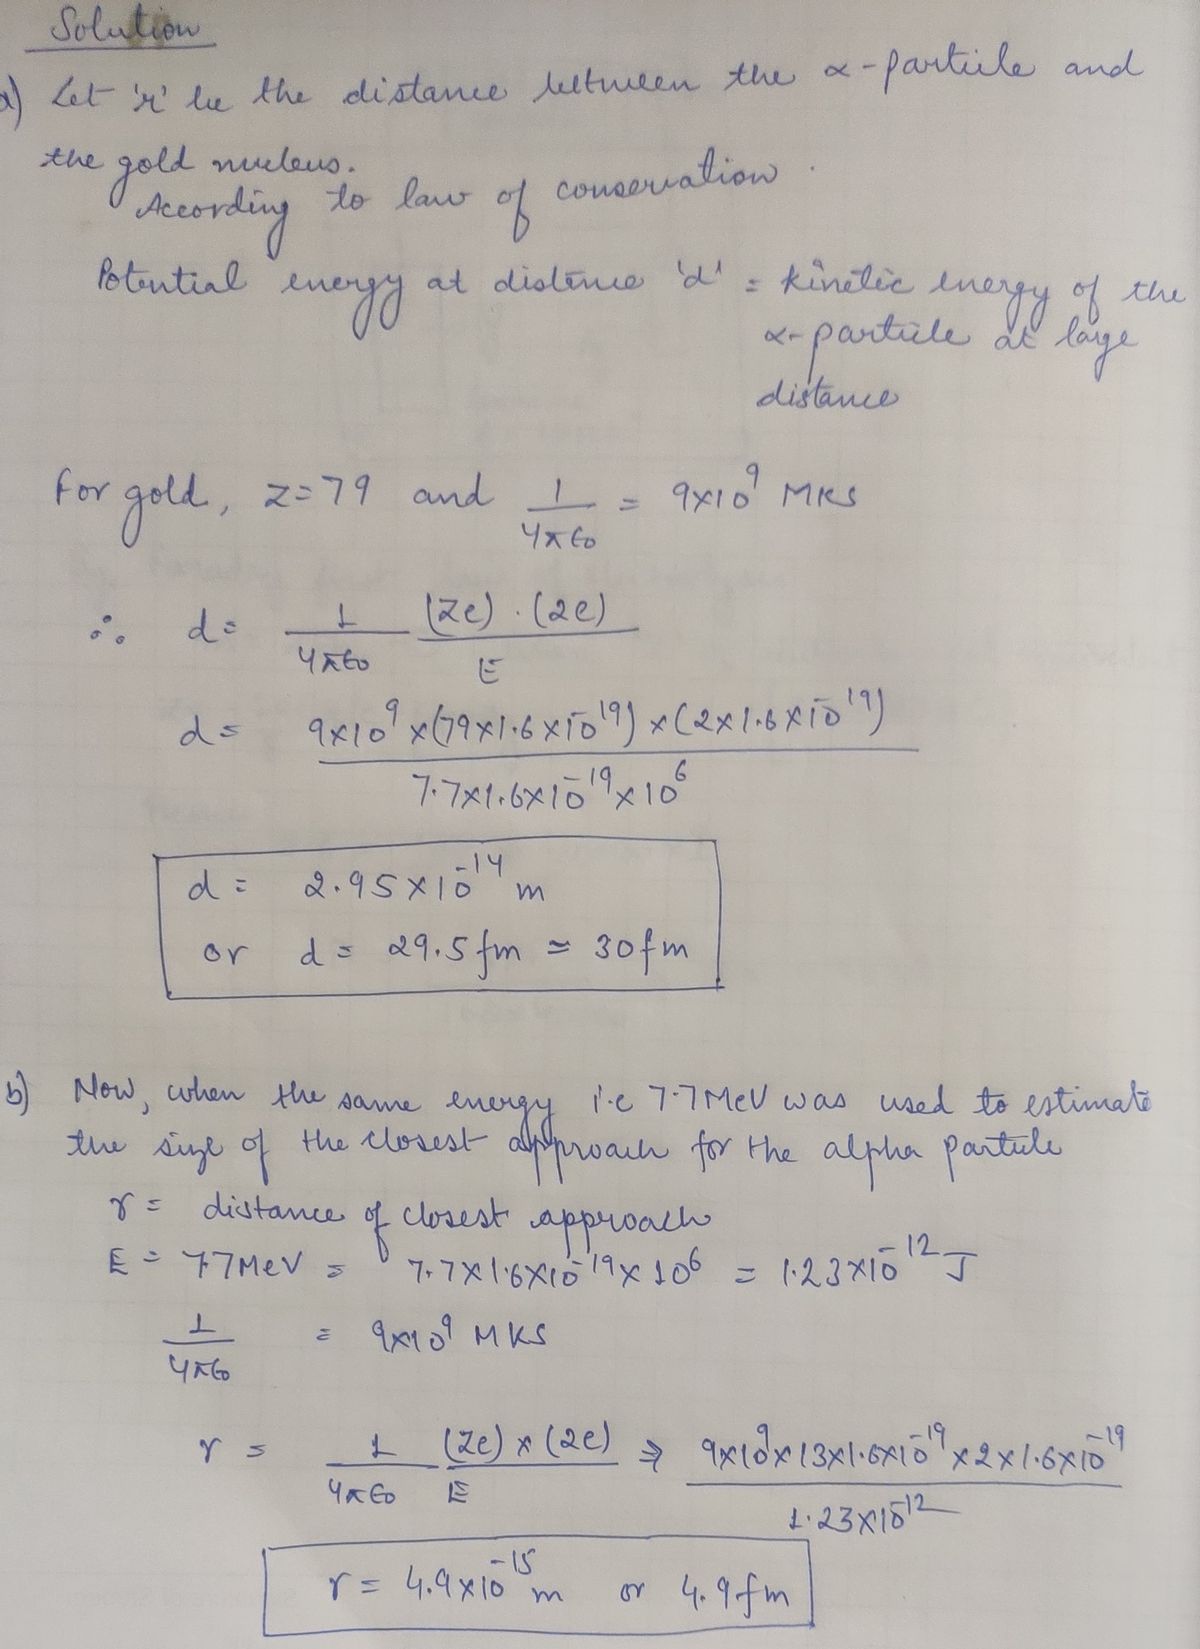 Solution
a) Let 'r' be the distance between the α-particle and
the gold nucleus.
According to law of conservation.
Potential energy at distance 'd' = kinetic energy of the
α-particle at large
distance
For gold, z=79 and 1/4πϵ₀ = 9×10⁹ MKS
∴ d = 1/4πϵ₀ (Ze).(2e)/E
d = 9×10⁹×(79×1.6×10⁻¹⁹)×(2×1.6×10⁻¹⁹)/7.7×1.6×10⁻¹⁹×10⁶
d = 2.95×10⁻¹⁴ m
or d = 29.5 fm ≃ 30 fm
b) Now, when the same energy i.e 7.7 MeV was used to estimate
the size of the closest approach for the alpha particle
r = distance of closest approach
E = 7.7 MeV = 7.7×1.6×10⁻¹⁹×10⁶ = 1.23×10⁻¹² J
1/4πϵ₀ = 9×10⁹ MKS
r = 1/4πϵ₀ (Ze)×(2e)/E ⇒ 9×10⁹×13×1.6×10⁻¹⁹×2×1.6×10⁻¹⁹/1.23×10⁻¹²
r = 4.9×10⁻¹⁵ m or 4.9 fm